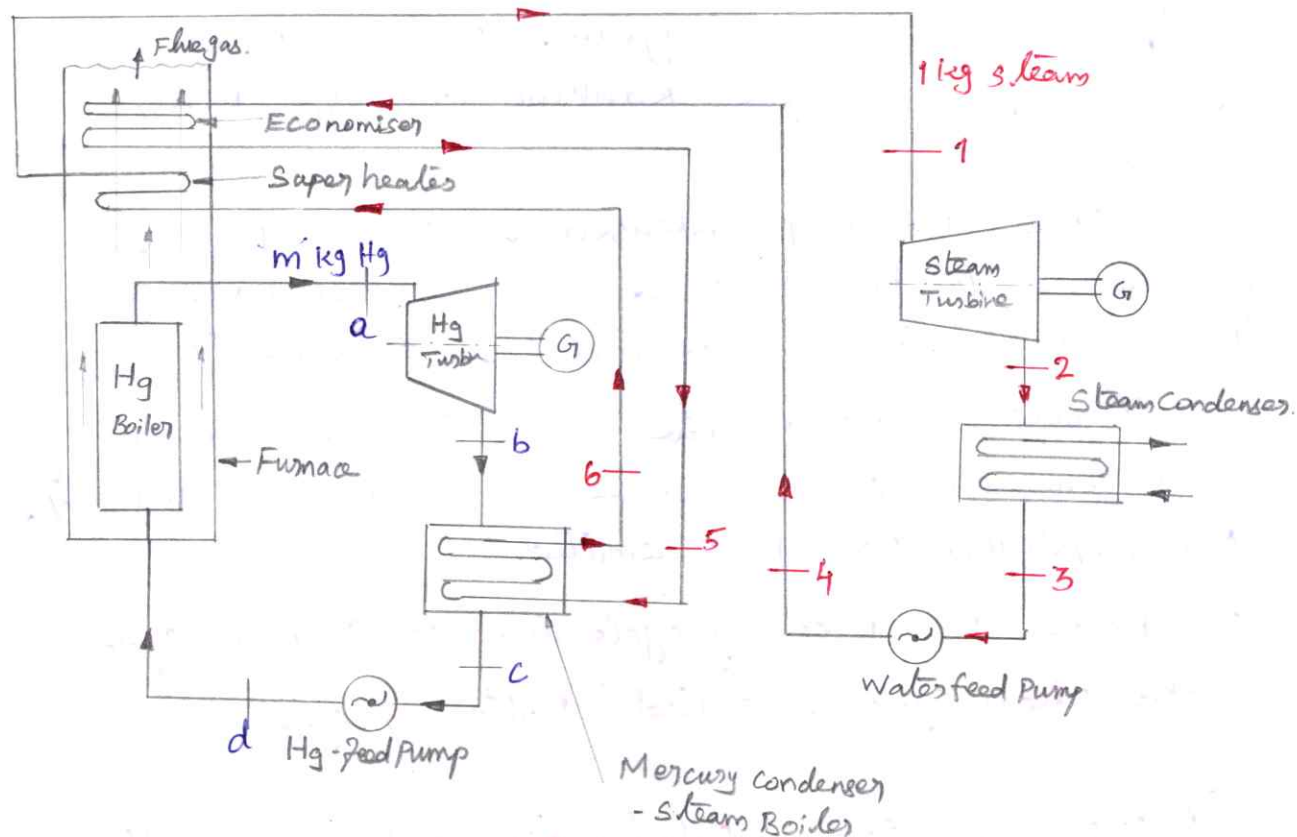 Flue gas.
1 kg steam
Economiser
1
Super heater
m kg Hg
a
Hg
Turbn
G
Steam
Turbine
G
2
Steam Condenser.
Hg
Boiler
Furnace
b
6
5
4
3
c
d
Hg-Feed Pump
Water feed Pump
Mercury condenser
- Steam Boiler